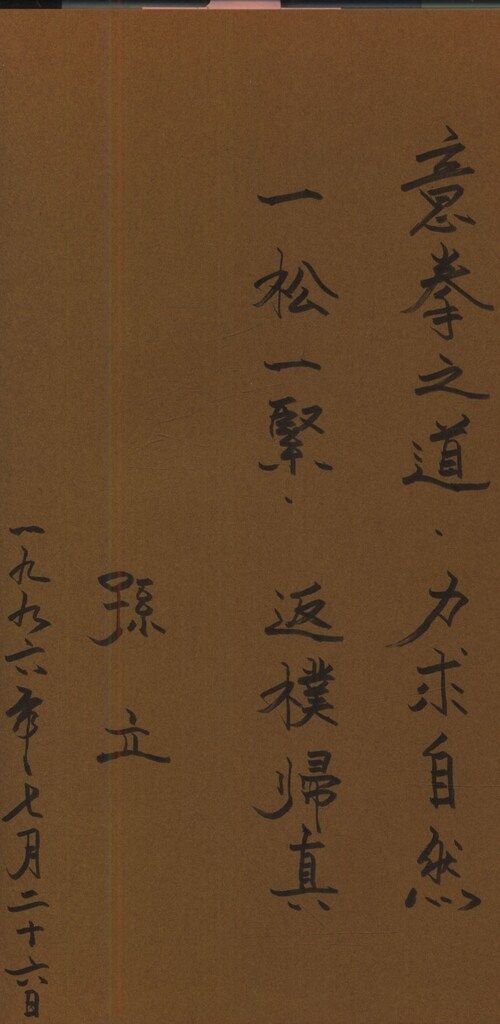 意拳之道．力求自然
一松一緊．返樸歸真
孫立
一九九六年七月二十六日